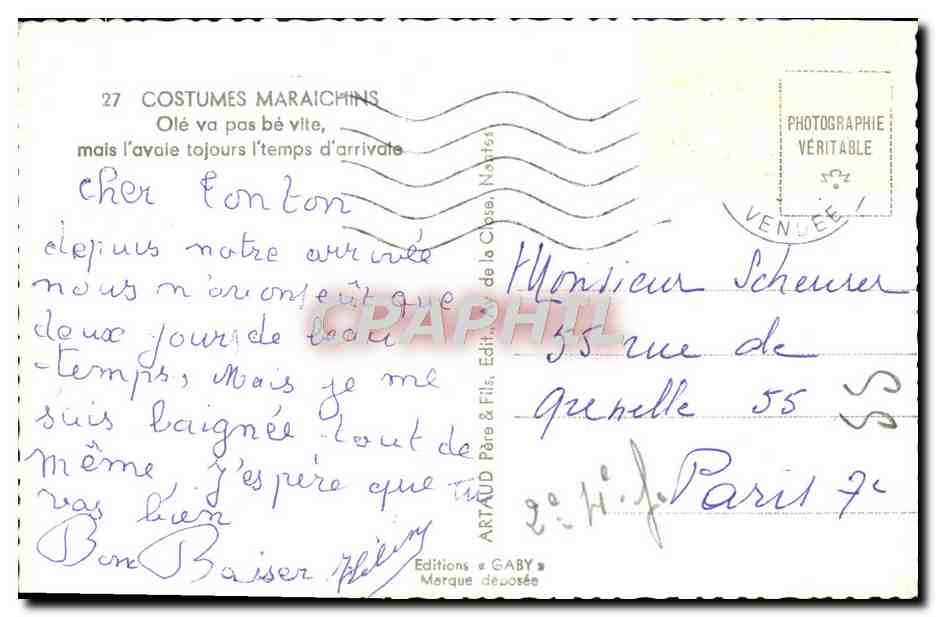 27 COSTUMES MARAICHINS
Olé va pas bé vite,
mais l'avaie tojours l'temps d'arrivaie
cher Tonton
depuis notre arrivée
nous n'avons eût que
deux jours de beau
temps, Mais je me
suis baignée tout de
même J'espère que tu
vas bien
Bon Baiser
ARTAUD Père & Fils, Edit., de la Close, Nantes
Editions « GABY »
Marque déposée
PHOTOGRAPHIE
VÉRITABLE
VENDÉE
Monsieur Scheurer
55 rue de
Grenelle 55
Paris 7e
55
2e 4e f.
CPAPHIL